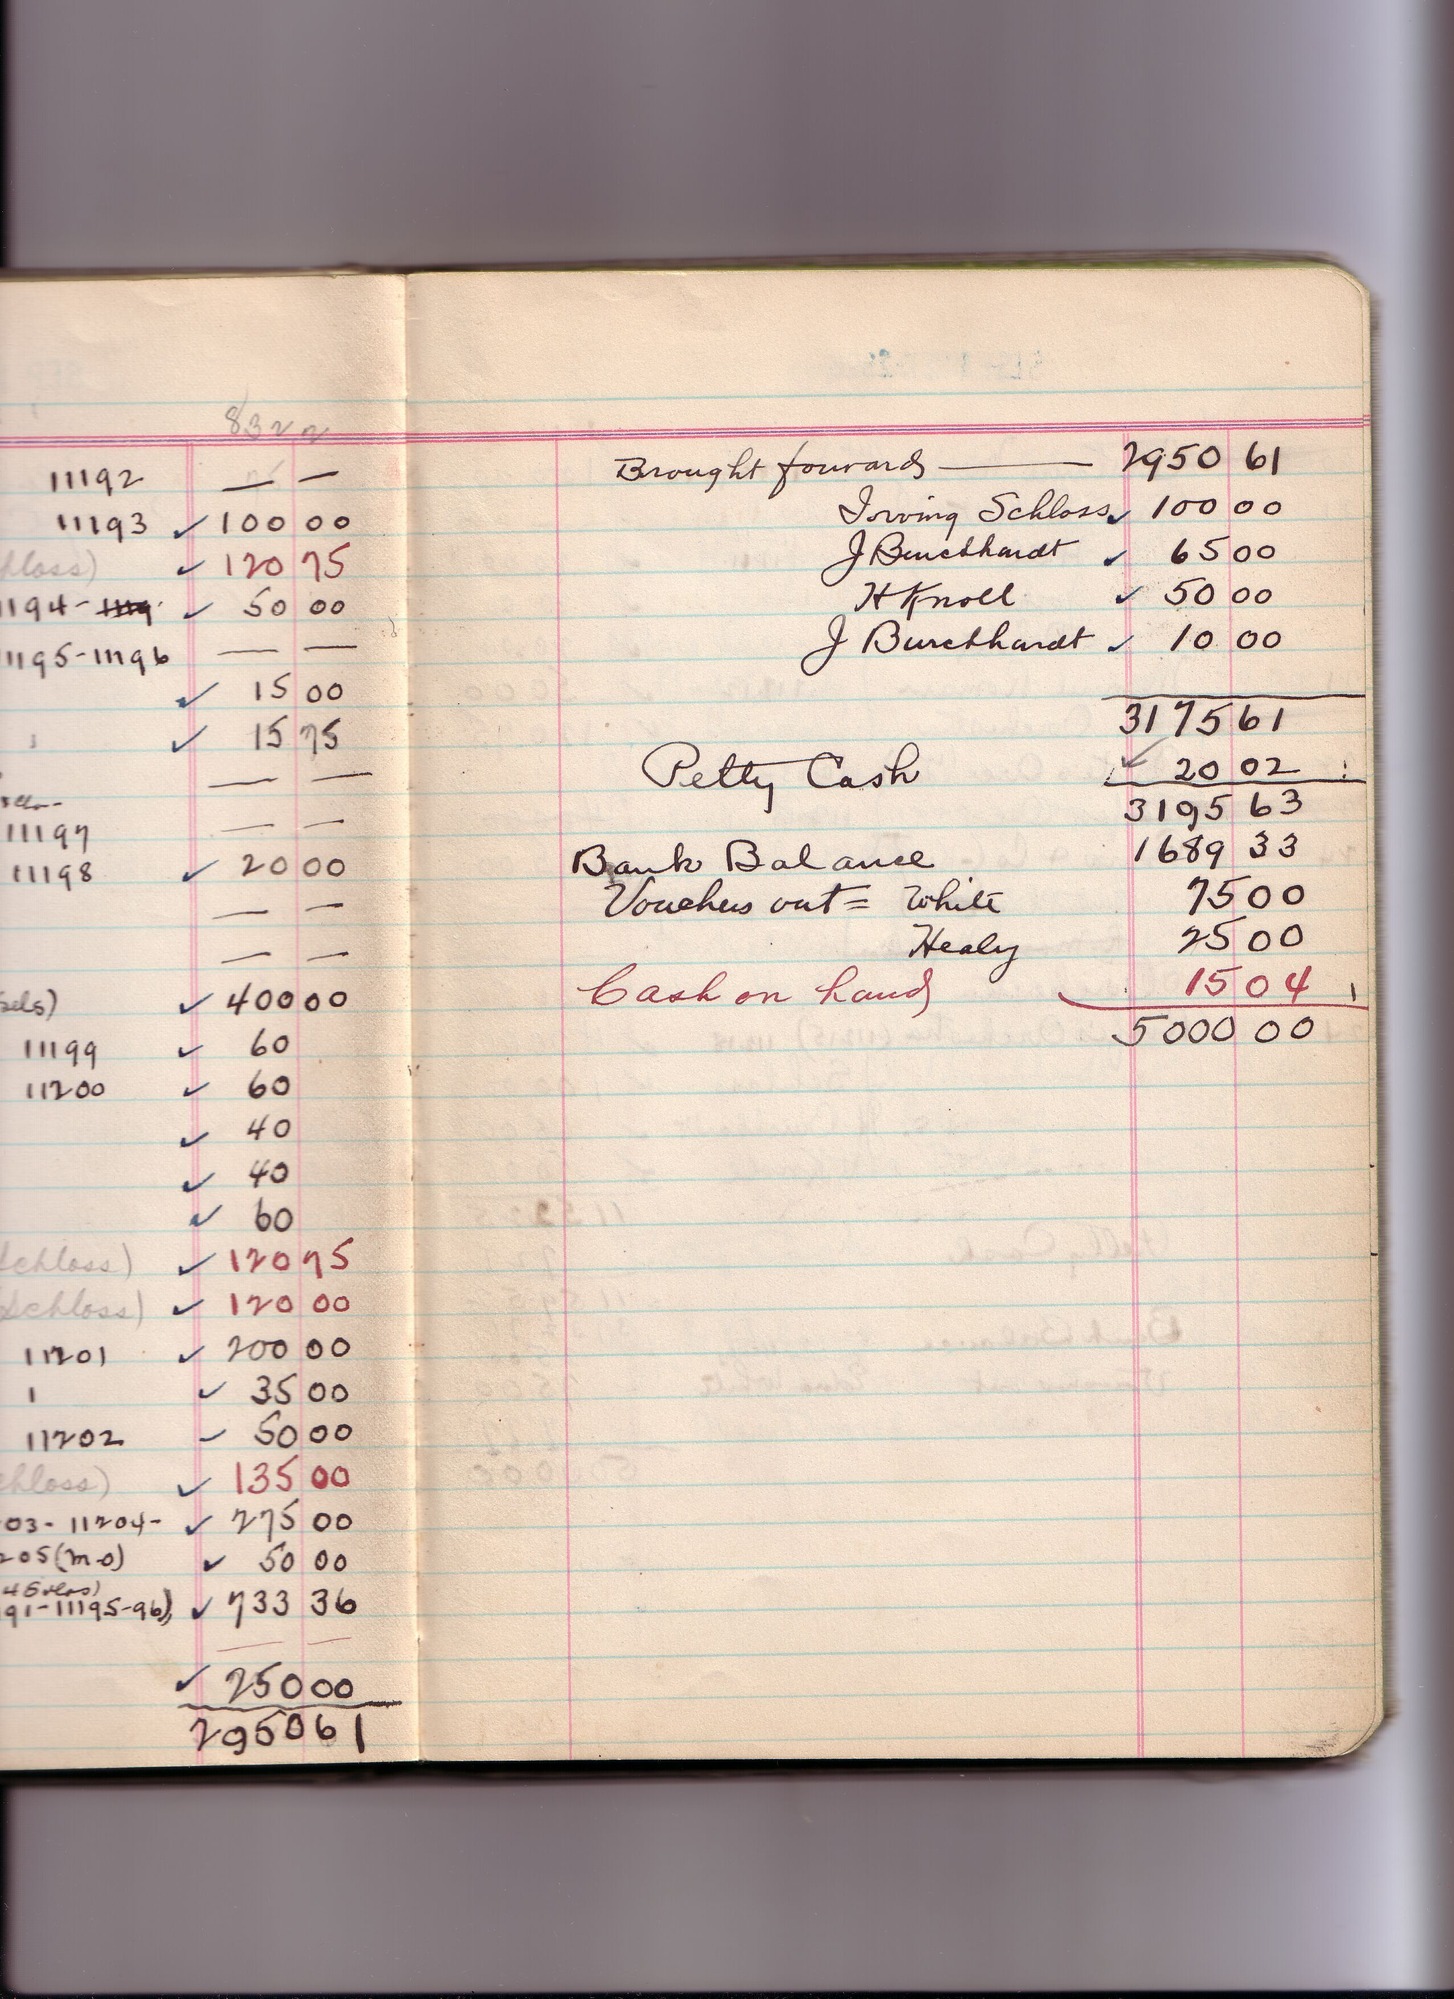 8322
11192 — —
11193 ✓ 100 00
chloss) ✓ 120 75
1194- ✓ 50 00
11195-11196 — —
✓ 15 00
✓ 15 75
— —
11197 — —
11198 ✓ 20 00
— —
— —
sels) ✓ 400 00
11199 ✓ 60
11200 ✓ 60
✓ 40
✓ 40
✓ 60
Schloss) ✓ 120 75
(Schloss) ✓ 120 00
11201 ✓ 200 00
✓ 35 00
11202 - 50 00
chloss) ✓ 135 00
03- 11204- ✓ 275 00
205 (m-o) ✓ 50 00
91-11195-96) ✓ 733 36
— —
✓ 250 00
2950 61
Brought forwards — 2950 61
Irving Schloss ✓ 100 00
J Burckhardt ✓ 65 00
H Knoll ✓ 50 00
J Burckhardt ✓ 10 00
3175 61
Petty Cash ✓ 20 02
3195 63
Bank Balance 1689 33
Vouchers out = White 75 00
Healy 25 00
Cash on hand 15 04
5000 00